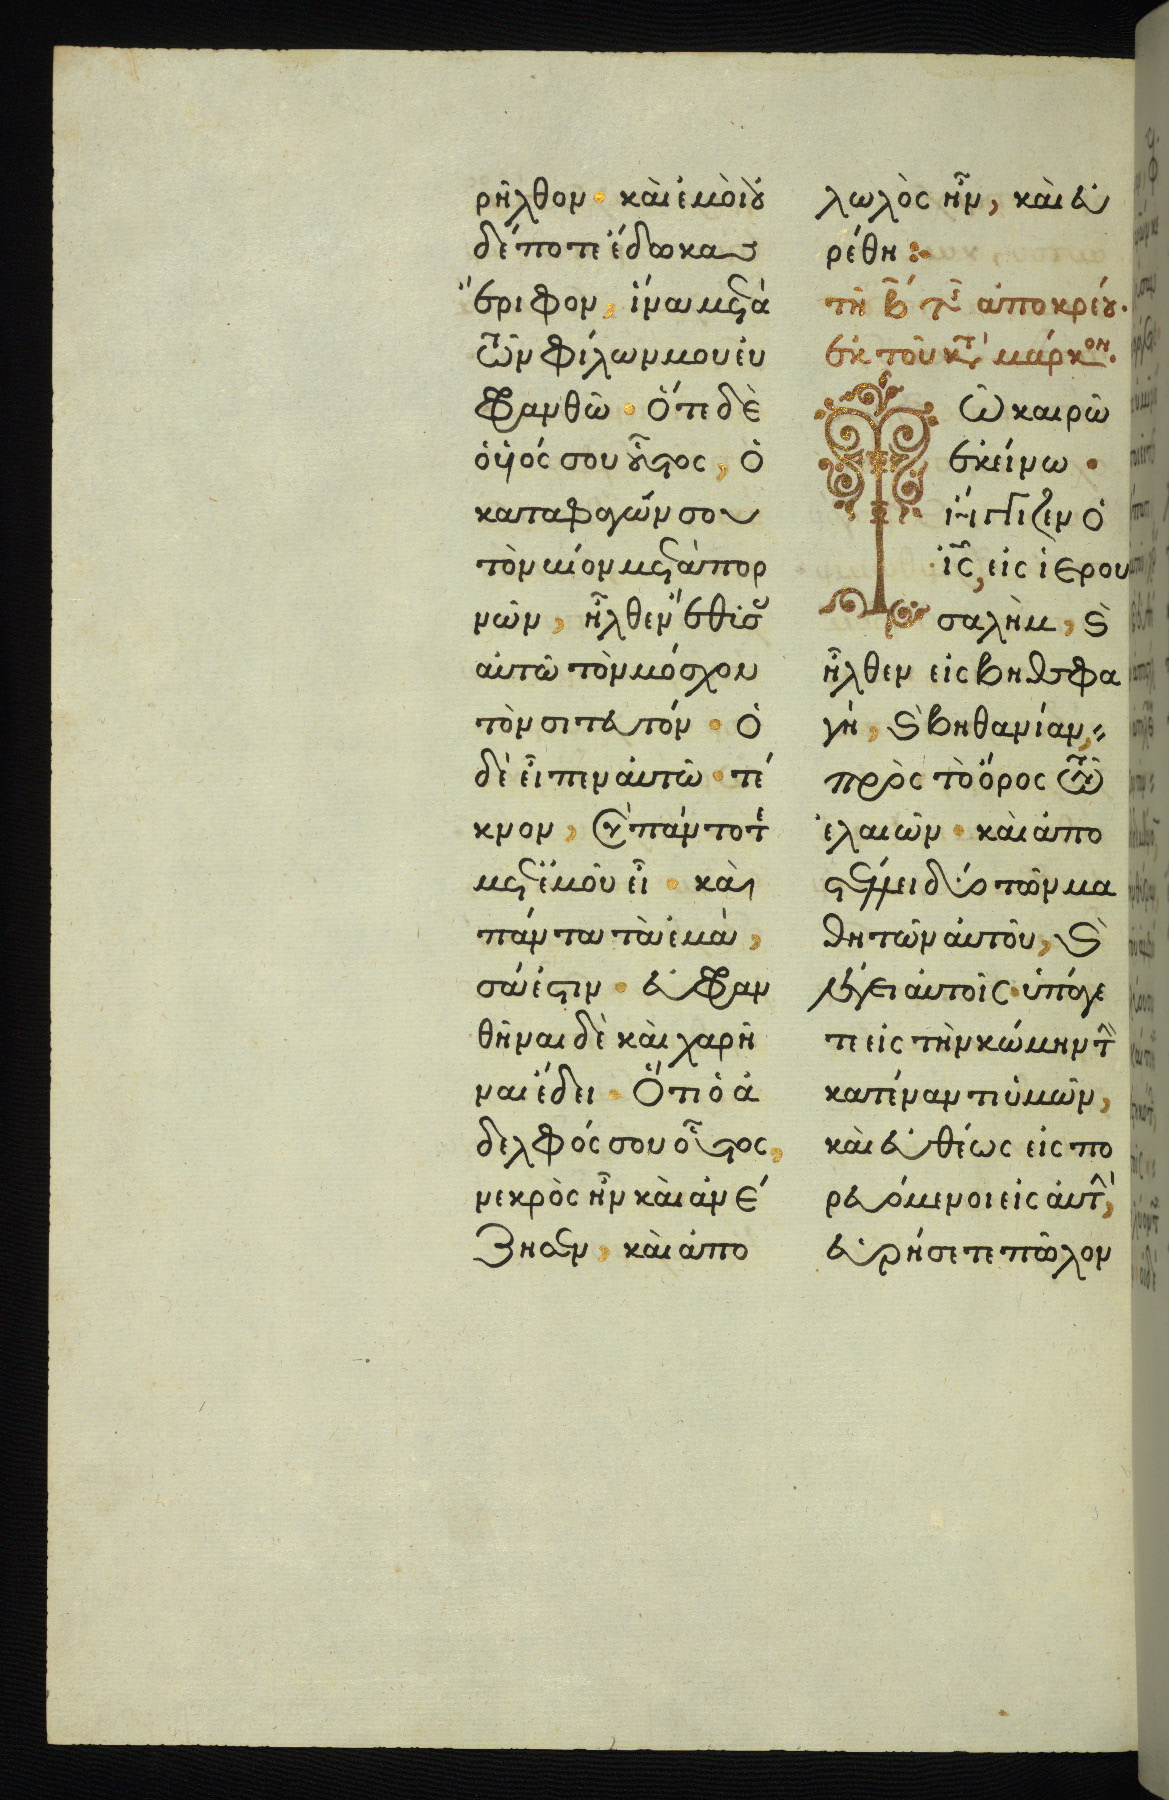 ρῆλθον · καὶ ἐμοὶ οὐ
δέποτε ἔδωκας
ἔριφον, ἵνα μετὰ
τῶν φίλων μου εὐ
φρανθῶ · Ὅτε δὲ
ὁ ὑϊός σου οὗτος, ὁ
καταφαγών σου
τὸν βίον μετὰ πορ
νῶν, ἦλθεν ἔθυσας
αὐτῶ τὸν μόσχον
τὸν σιτευτόν · Ὁ
δὲ εἶπεν αὐτῶ · τέ
κνον, σὺ πάντοτε
μετ ἐμοῦ εἶ · καὶ
πάντα τὰ ἐμὰ,
σά ἐστιν · εὐφραν
θῆναι δὲ καὶ χαρῆ
ναι ἔδει · Ὅτι ὁ ἀ
δελφός σου οὗτος,
νεκρὸς ἦν καὶ ἀνέ
ζησεν, καὶ ἀπο
λωλὸς ἦν, καὶ εὑ
ρέθη :
τῆ β τῆς ἀπόκρεου.
ἐκ τοῦ κατὰ μάρκον.
Τῶ καιρῶ
ἐκείνω ·
ἤγγιζεν ὁ
ις, εἰς ἱερου
σαλὴμ, καὶ
ἦλθεν εἰς βηθσφα
γή, καὶ βηθανίαν,
πρὸς τὸ ὄρος τῶν
ἐλαιῶν · καὶ ἀπο
στέλλει δύο τῶν μα
θητῶν αὐτοῦ, καὶ
λέγει αὐτοῖς · ὑπάγε
τε εἰς τὴν κώμην τὴν
κατέναντι ὑμῶν,
καὶ εὐθέως εἰς πο
ρευόμενοι εἰς αὐτὴν,
εὑρήσετε πῶλον